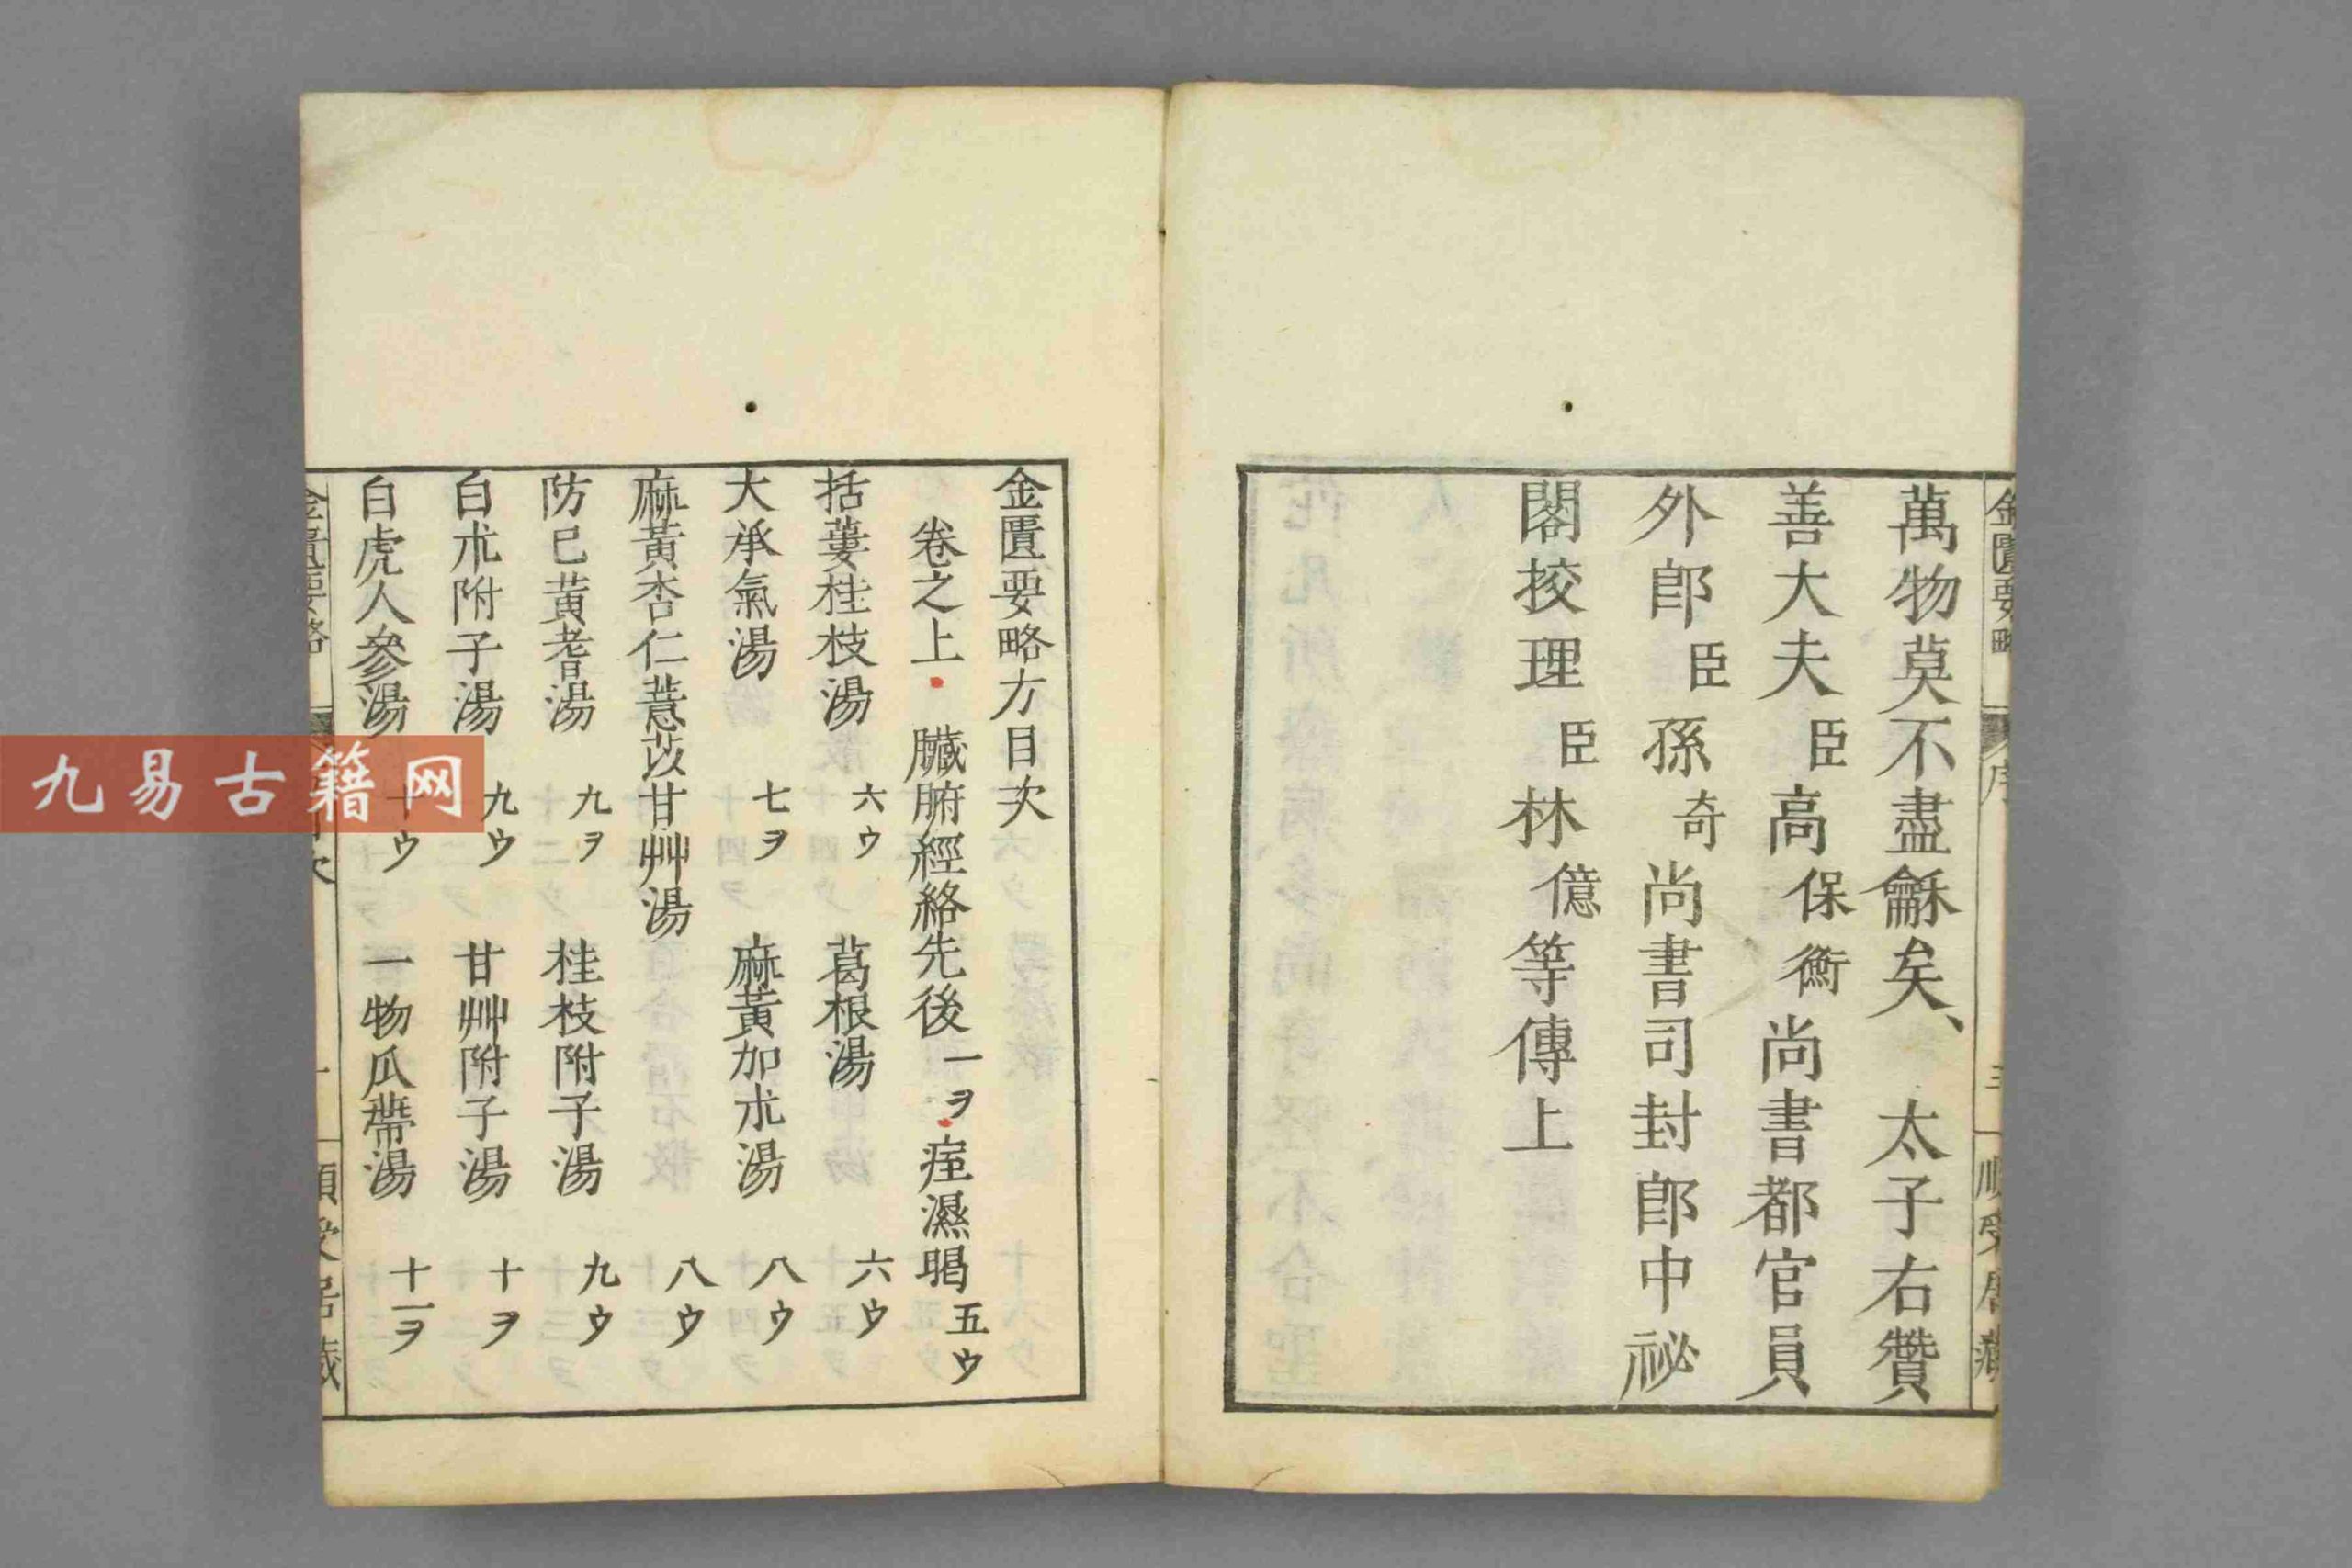 萬物莫不盡龢矣、太子右贊
善大夫臣高保衡尚書都官員
外郎臣孫奇尚書司封郎中祕
閣挍理臣林億等傳上
金匱要略方目次
卷之上 臟腑經絡先後一ヲ 痓濕暍五ウ
括蔞桂枝湯 六ウ 葛根湯 六ウ
大承氣湯 七ヲ 麻黃加朮湯 八ウ
麻黃杏仁薏苡甘艸湯 八ウ
防己黃耆湯 九ヲ 桂枝附子湯 九ウ
白朮附子湯 九ウ 甘艸附子湯 十ヲ
白虎人參湯 十ウ 一物瓜蔕湯 十一ヲ
九易古籍网